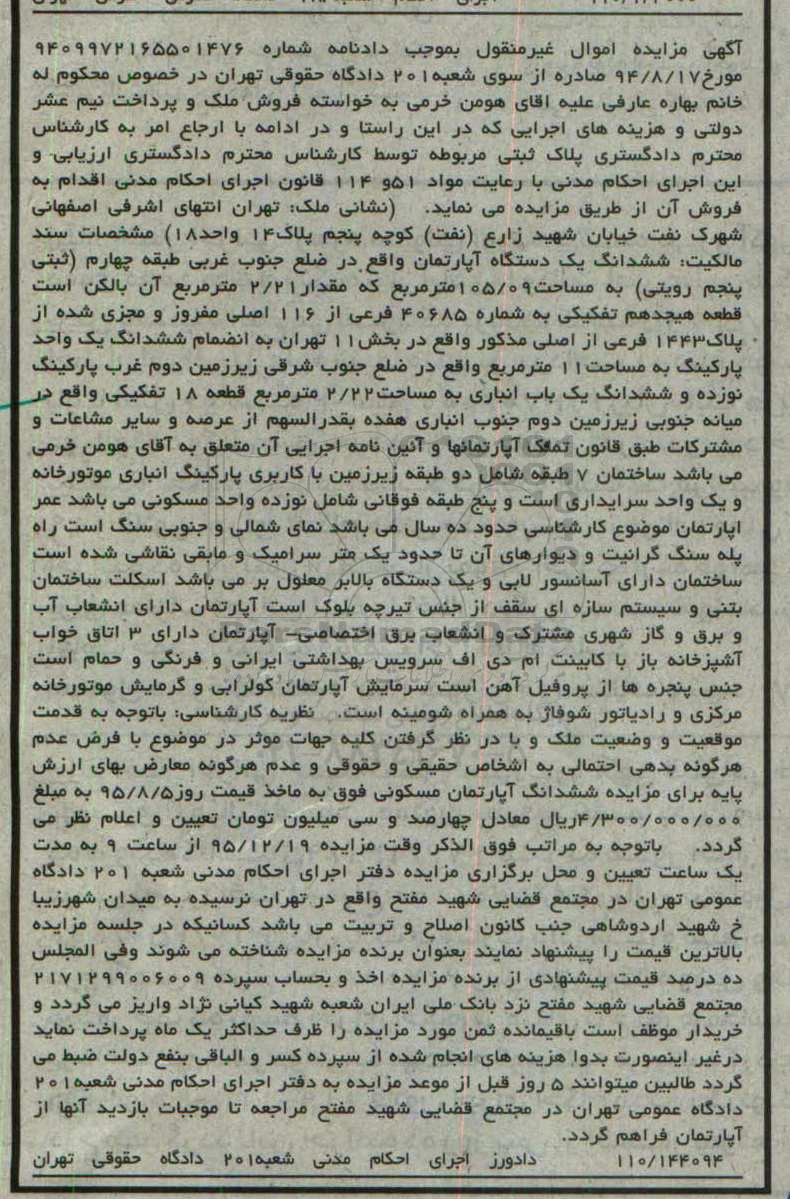 آگهی مزایده اموال غیرمنقول بموجب دادنامه شماره ۹۴۰۹۹۷۲۱۶۵۵۰۱۴۷۶
مورخ۹۴/۸/۱۷ صادره از سوی شعبه۲۰۱ دادگاه حقوقی تهران در خصوص محکوم له
خانم بهاره عارفی علیه اقای هومن خرمی به خواسته فروش ملک و پرداخت نیم عشر
دولتی و هزینه های اجرایی که در این راستا و در ادامه با ارجاع امر به کارشناس
محترم دادگستری پلاک ثبتی مربوطه توسط کارشناس محترم دادگستری ارزیابی و
این اجرای احکام مدنی با رعایت مواد ۵۱و ۱۱۴ قانون اجرای احکام مدنی اقدام به
فروش آن از طریق مزایده می نماید. (نشانی ملک: تهران انتهای اشرفی اصفهانی
شهرک نفت خیابان شهید زارع (نفت) کوچه پنجم پلاک۱۴ واحد۱۸) مشخصات سند
مالکیت: ششدانگ یک دستگاه آپارتمان واقع در ضلع جنوب غربی طبقه چهارم (ثبتی
پنجم رویتی) به مساحت۱۰۵/۰۹مترمربع که مقدار۲/۲۱ مترمربع آن بالکن است
قطعه هیجدهم تفکیکی به شماره ۴۰۶۸۵ فرعی از ۱۱۶ اصلی مفروز و مجزی شده از
پلاک۱۴۴۳ فرعی از اصلی مذکور واقع در بخش۱۱ تهران به انضمام ششدانگ یک واحد
پارکینگ به مساحت۱۱ مترمربع واقع در ضلع جنوب شرقی زیرزمین دوم غرب پارکینگ
نوزده و ششدانگ یک باب انباری به مساحت۲/۲۲ مترمربع قطعه ۱۸ تفکیکی واقع در
میانه جنوبی زیرزمین دوم جنوب انباری هفده بقدرالسهم از عرصه و سایر مشاعات و
مشترکات طبق قانون تملک آپارتمانها و آئین نامه اجرایی آن متعلق به آقای هومن خرمی
می باشد ساختمان ۷ طبقه شامل دو طبقه زیرزمین با کاربری پارکینگ انباری موتورخانه
و یک واحد سرایداری است و پنج طبقه فوقانی شامل نوزده واحد مسکونی می باشد عمر
اپارتمان موضوع کارشناسی حدود ده سال می باشد نمای شمالی و جنوبی سنگ است راه
پله سنگ گرانیت و دیوارهای آن تا حدود یک متر سرامیک و مابقی نقاشی شده است
ساختمان دارای آسانسور لابی و یک دستگاه بالابر معلول بر می باشد اسکلت ساختمان
بتنی و سیستم سازه ای سقف از جنس تیرچه بلوک است آپارتمان دارای انشعاب آب
و برق و گاز شهری مشترک و انشعاب برق اختصاصی– آپارتمان دارای ۳ اتاق خواب
آشپزخانه باز با کابینت ام دی اف سرویس بهداشتی ایرانی و فرنگی و حمام است
جنس پنجره ها از پروفیل آهن است سرمایش آپارتمان کولرابی و گرمایش موتورخانه
مرکزی و رادیاتور شوفاژ به همراه شومینه است. نظریه کارشناسی: باتوجه به قدمت
موقعیت و وضعیت ملک و با در نظر گرفتن کلیه جهات موثر در موضوع با فرض عدم
هرگونه بدهی احتمالی به اشخاص حقیقی و حقوقی و عدم هرگونه معارض بهای ارزش
پایه برای مزایده ششدانگ آپارتمان مسکونی فوق به ماخذ قیمت روز۹۵/۸/۵ به مبلغ
۴/۳۰۰/۰۰۰/۰۰۰ریال معادل چهارصد و سی میلیون تومان تعیین و اعلام نظر می
گردد. باتوجه به مراتب فوق الذکر وقت مزایده ۹۵/۱۲/۱۹ از ساعت ۹ به مدت
یک ساعت تعیین و محل برگزاری مزایده دفتر اجرای احکام مدنی شعبه ۲۰۱ دادگاه
عمومی تهران در مجتمع قضایی شهید مفتح واقع در تهران نرسیده به میدان شهرزیبا
خ شهید اردوشاهی جنب کانون اصلاح و تربیت می باشد کسانیکه در جلسه مزایده
بالاترین قیمت را پیشنهاد نمایند بعنوان برنده مزایده شناخته می شوند وفی المجلس
ده درصد قیمت پیشنهادی از برنده مزایده اخذ و بحساب سپرده ۲۱۷۱۲۹۹۰۰۶۰۰۹
مجتمع قضایی شهید مفتح نزد بانک ملی ایران شعبه شهید کیانی نژاد واریز می گردد و
خریدار موظف است باقیمانده ثمن مورد مزایده را ظرف حداکثر یک ماه پرداخت نماید
درغیر اینصورت بدوا هزینه های انجام شده از سپرده کسر و الباقی بنفع دولت ضبط می
گردد طالبین میتوانند ۵ روز قبل از موعد مزایده به دفتر اجرای احکام مدنی شعبه۲۰۱
دادگاه عمومی تهران در مجتمع قضایی شهید مفتح مراجعه تا موجبات بازدید آنها از
آپارتمان فراهم گردد.
۱۱۰/۱۴۴۰۹۴ دادورز اجرای احکام مدنی شعبه۲۰۱ دادگاه حقوقی تهران